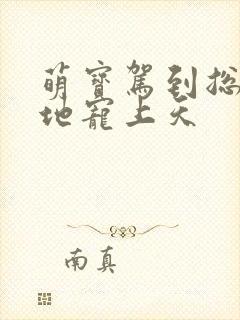 萌寶駕到总
地寵上天
南真